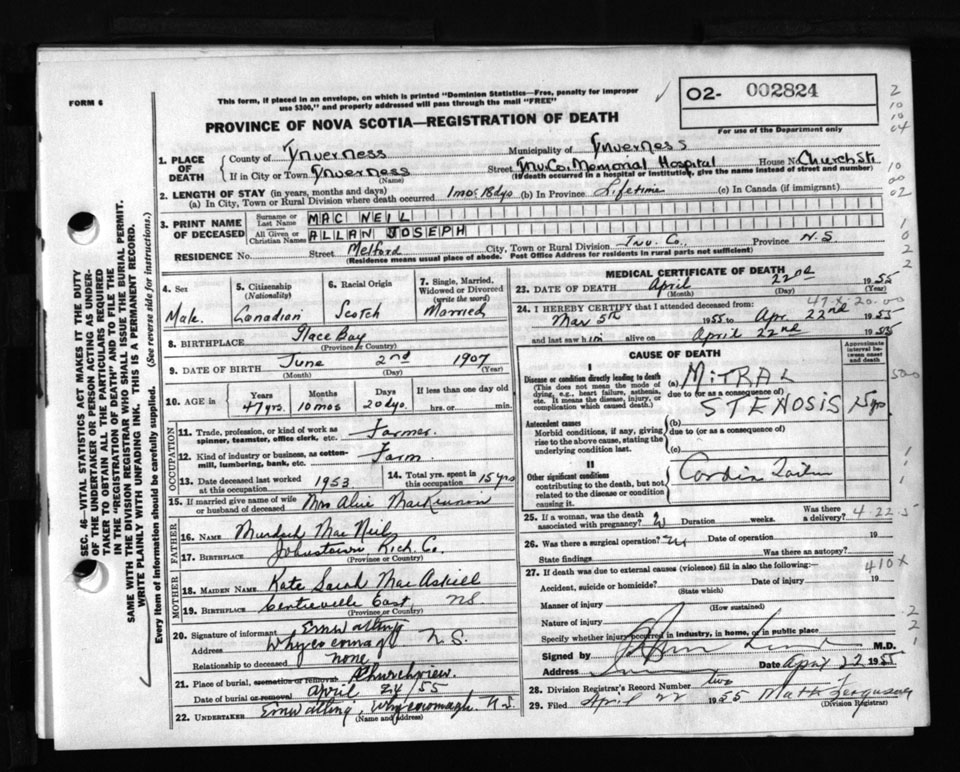 FORM 6
This form, if placed in an envelope, on which is printed "Dominion Statistics—Free, penalty for improper use $300," and properly addressed will pass through the mail "FREE"
02- 002824
For use of the Department only
PROVINCE OF NOVA SCOTIA—REGISTRATION OF DEATH
2
10
10
04
10
00
02
SEC. 46—VITAL STATISTICS ACT MAKES IT THE DUTY
OF THE UNDERTAKER OR PERSON ACTING AS UNDER-
TAKER TO OBTAIN ALL THE PARTICULARS REQUIRED
IN THE "REGISTRATION OF DEATH" AND TO FILE THE
SAME WITH THE DIVISION REGISTRAR WHO SHALL ISSUE THE BURIAL PERMIT.
WRITE PLAINLY WITH UNFADING INK. THIS IS A PERMANENT RECORD.
Every item of information should be carefully supplied. (See reverse side for instructions.)
1. PLACE OF DEATH
County of Inverness Municipality of Inverness
If in City or Town Inverness (Name) Street Inv. Co. Memorial Hospital House No. Church St.
(If death occurred in a hospital or institution, give the name instead of street and number)
2. LENGTH OF STAY (in years, months and days)
(a) In City, Town or Rural Division where death occurred 1mos 18dys (b) In Province Lifetime (c) In Canada (if immigrant)
3. PRINT NAME OF DECEASED
Surname or Last Name MAC NEIL
All Given or Christian Names ALLAN JOSEPH
RESIDENCE No. Street Melford City, Town or Rural Division Inv. Co. Province N.S.
(Residence means usual place of abode. Post Office Address for residents in rural parts not sufficient)
4. Sex Male
5. Citizenship (Nationality) Canadian
6. Racial Origin Scotch
7. Single, Married, Widowed or Divorced (write the word) Married
8. BIRTHPLACE Glace Bay
(Province or Country)
9. DATE OF BIRTH June 2nd 1907
(Month) (Day) (Year)
10. AGE in Years 47yrs. Months 10mos Days 20dys If less than one day old hrs. or min.
OCCUPATION
11. Trade, profession, or kind of work as spinner, teamster, office clerk, etc. Farmer.
12. Kind of industry or business, as cotton-mill, lumbering, bank, etc. Farm
13. Date deceased last worked at this occupation 1953
14. Total yrs. spent in this occupation 15yrs
15. If married give name of wife or husband of deceased Mrs MacKinnon
FATHER
16. NAME Murdoch Mac Neil
17. BIRTHPLACE Johnstown, Rich. Co.
(Province or Country)
MOTHER
18. MAIDEN NAME Kate Sarah MacAskill
19. BIRTHPLACE Centreville East NS
(Province or Country)
20. Signature of informant
Address Whycocomagh N.S.
Relationship to deceased none
21. Place of burial, cremation or removal Churchview.
Date of burial or removal April 24/55
22. UNDERTAKER Whycocomagh. N.S.
(Name and Address)
MEDICAL CERTIFICATE OF DEATH
23. DATE OF DEATH April 22nd 1955
(Month) (Day) (Year)
24. I HEREBY CERTIFY that I attended deceased from: 47-x-20-00
Mar 5th 1955 to Apr. 22nd 1955
and last saw him alive on April 22nd 1955
CAUSE OF DEATH
Approximate interval between onset and death
I
Disease or condition directly leading to death
(This does not mean the mode of dying, e.g., heart failure, asthenia, etc. It means the disease, injury, or complication which caused death.)
(a) MITRAL
due to (or as a consequence of)
STENOSIS 25 yrs
Antecedent causes
Morbid conditions, if any, giving rise to the above cause, stating the underlying condition last.
(b)
due to (or as a consequence of)
(c)
II
Other significant conditions
contributing to the death, but not related to the disease or condition causing it.
25. If a woman, was the death associated with pregnancy? Duration weeks. Was there a delivery? 4-22-5
26. Was there a surgical operation? Date of operation 19
State findings Was there an autopsy?
27. If death was due to external causes (violence) fill in also the following: 410x
Accident, suicide or homicide? Date of injury 19
(State which)
Manner of injury
(How sustained)
Nature of injury
Specify whether injury occurred in industry, in home, or in public place
Signed by M.D.
Address Date April 22 1955
28. Division Registrar's Record Number two
29. Filed April 22 1955
(Division Registrar)